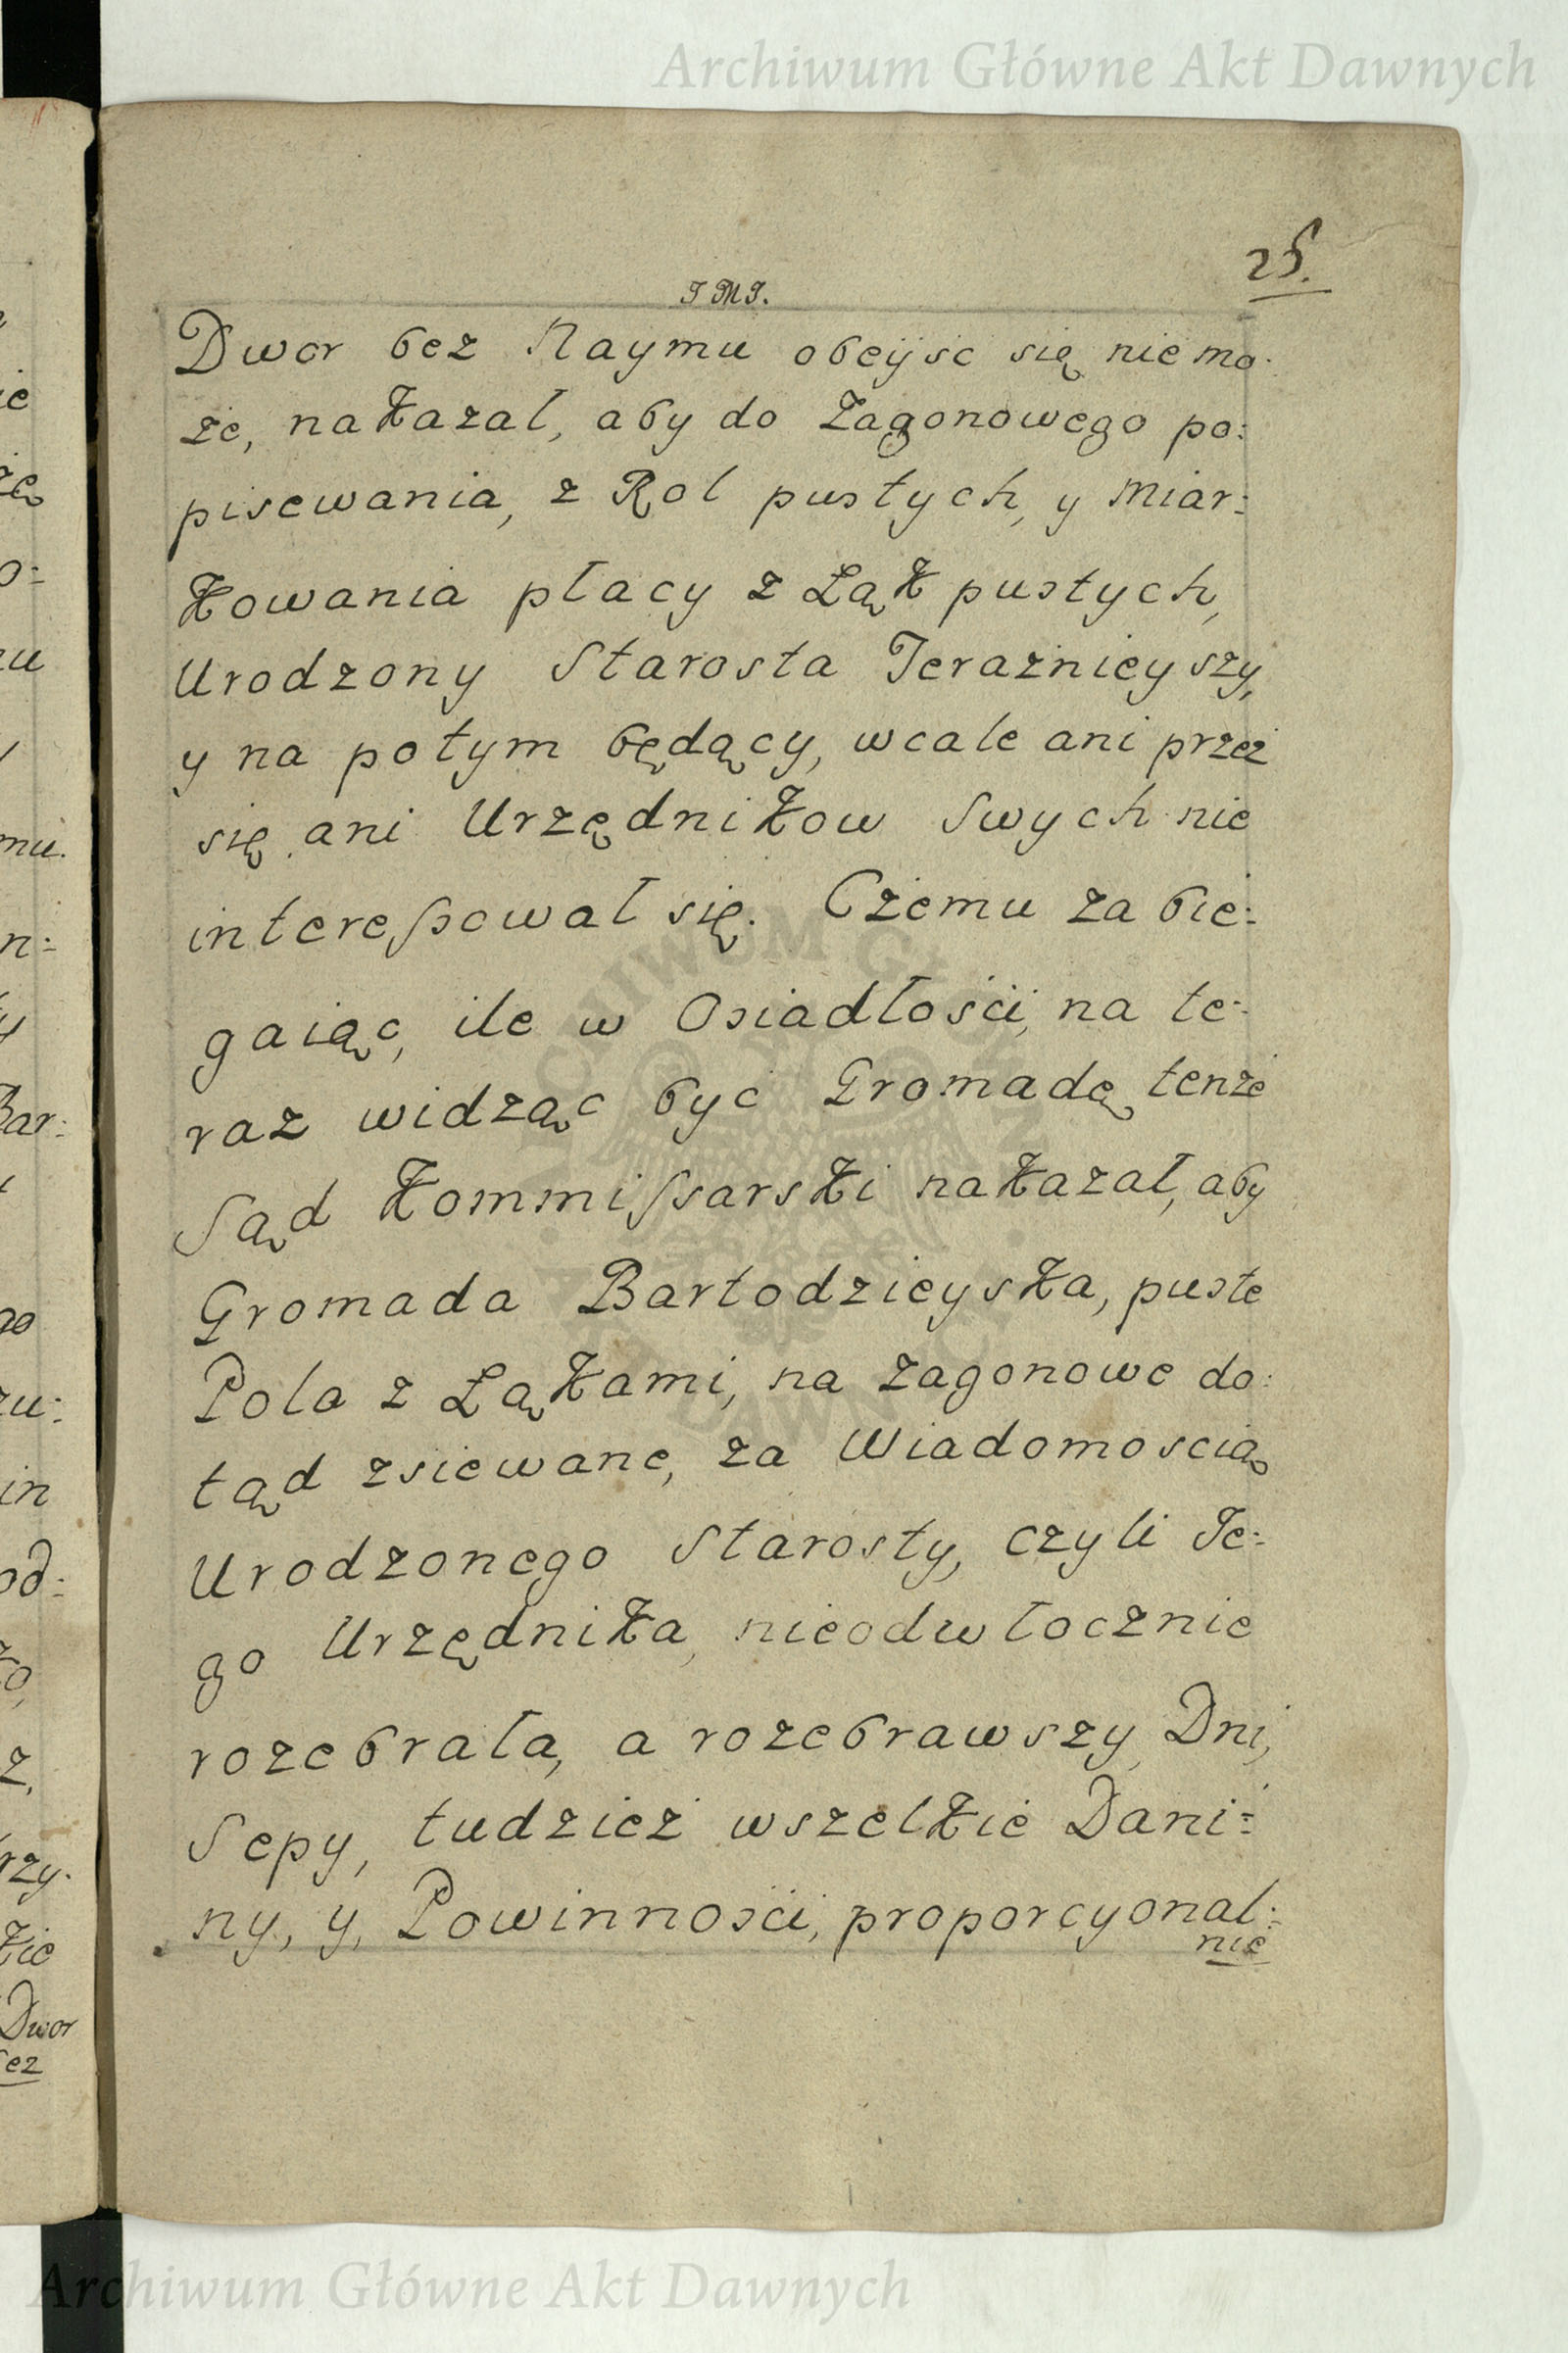 Archiwum Główne Akt Dawnych
25.
J M J.
Dwor bez Naymu obeyśc się nie mo:
że, nakazał, aby do Zagonowego po:
pisewania, z Rol pustych, y Miar:
kowania płacy z Łąk pustych,
Urodzony Starosta Teraźnieyszy,
y na potym będący, wcale ani przez
się ani Urzędnikow Swych nie
interessował się. Czemu zabie:
gaiąc, ile w Osiadłości na te:
raz widząc byc Gromadę tenże
Sąd Kommissarski nakazał, aby
Gromada Bartodzieyska, puste
Pola z Łąkami, na zagonowe do:
tąd zsiewane, za Wiadomoscią
Urodzonego Starosty, czyli Je:
go Urzędnika, nieodwłocznie
rozebrała, a rozebrawszy Dni,
Sepy, tudzież wszelkie Dani:
ny, y, Powinności, proporcyonal:
nie
Archiwum Główne Akt Dawnych